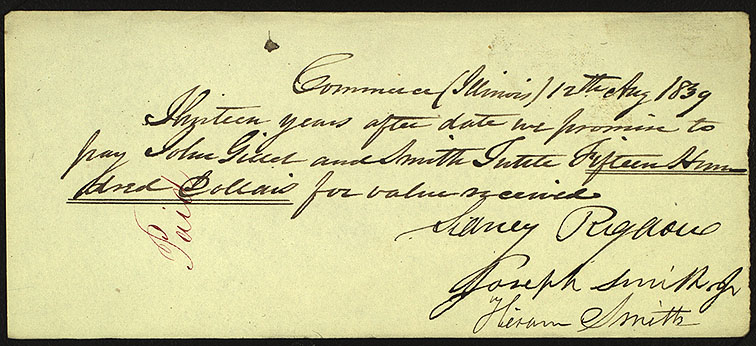 Commerce (Illinois) 12th Aug 1839
Thirteen years after date we promise to
pay John Gillet and Smith Tutle Fifteen Hun
dred Dollars for value received
Sidney Rigdon
Joseph Smith Jr
Hiram Smith
Paid